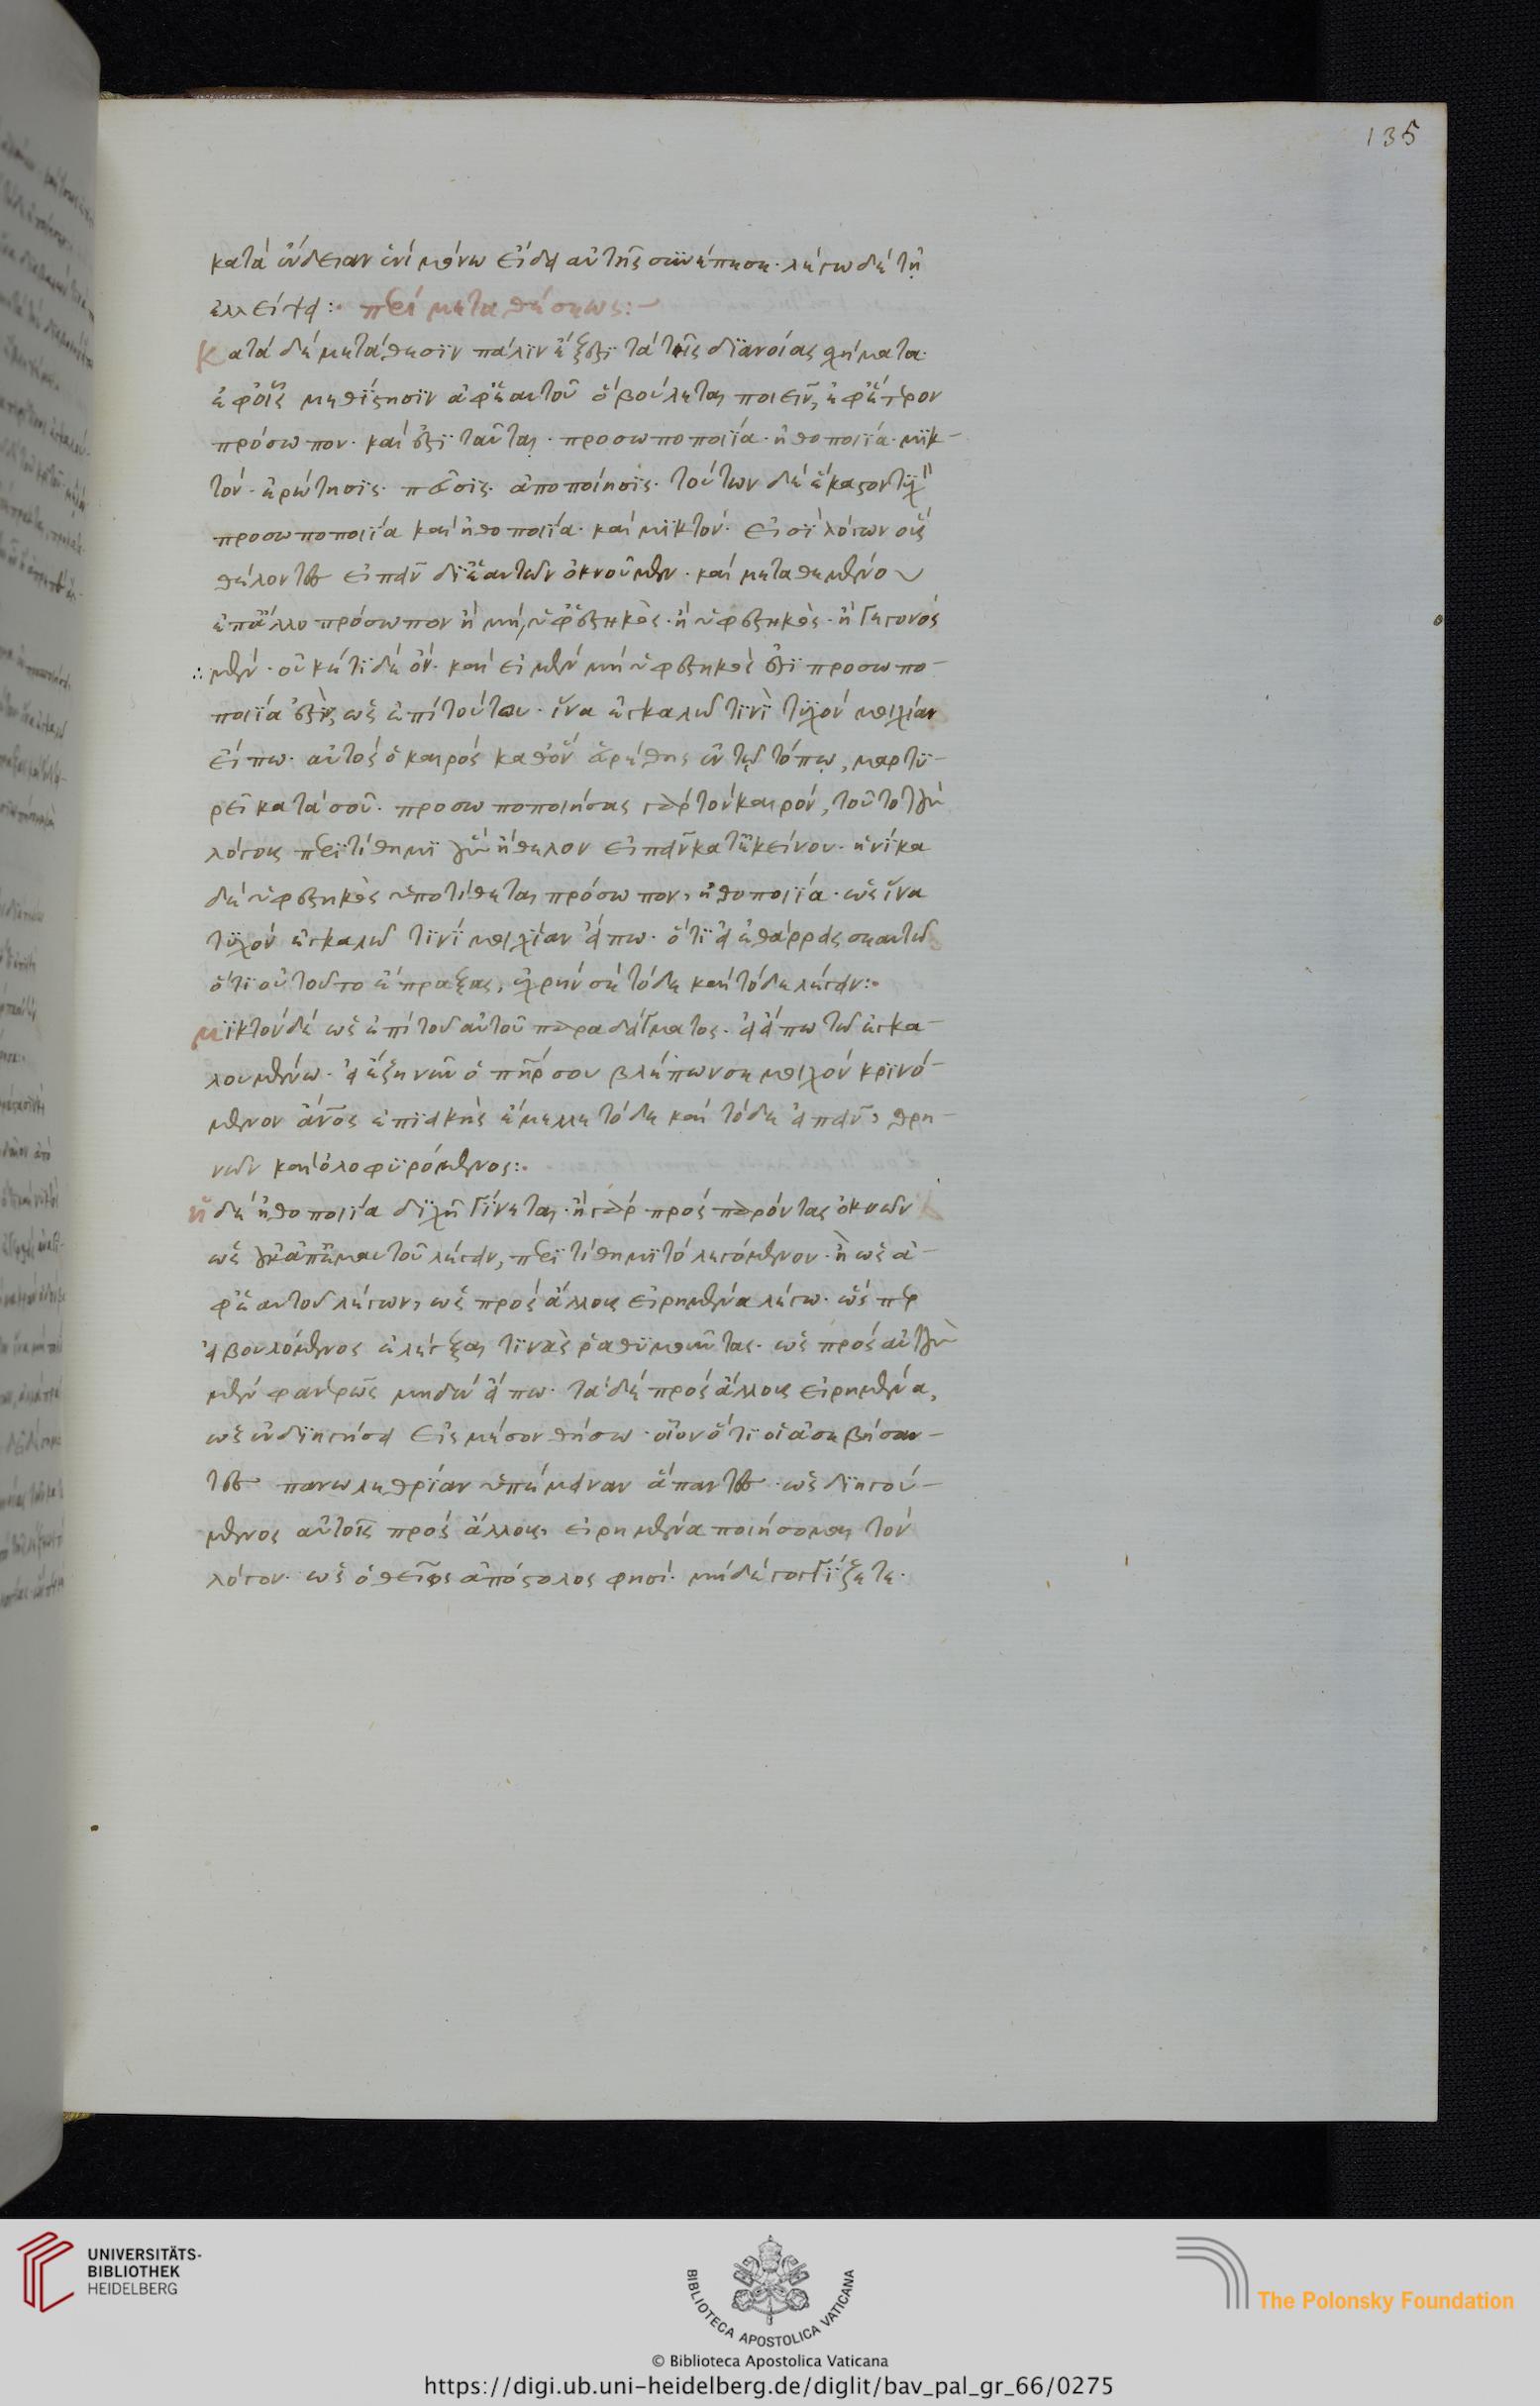 135
κατὰ ἔνδειαν ἑνὶ μόνω εἴδει αὐτῆς συνέπεσε· λέγω δὲ τῇ
ἐλλείψει: περὶ μεταθέσεως:
Κατὰ δὲ μετάθεσϊν πάλϊν ἕξ ἐστϊ τὰ τῆς δϊανοίας σχήματα·
ἐφ' οἷς μεθίστησϊν ἀφ' ἑαυτοῦ ὃ βούλεται ποιεῖν, ἐφ' ἕτερον
πρόσωπον· καὶ ἔστϊ ταῦτα· προσωποποιΐα· ἠθοποιΐα· μϊκ-
τόν· ἐρώτησϊς· πεῦσϊς· ἀποποίησϊς· τούτων δὲ ἕκαστον
προσωποποιΐα καὶ ἠθοποιΐα· καὶ μϊκτόν· εἰσὶ λόγων οὓς
θέλοντες εἰπεῖν δι' ἑαυτῶν ὀκνοῦμεν· καὶ μεταθεμένων
ἐπ' ἄλλο πρόσωπον ἢ μὴ ὑφεστηκὸς· ἢ ὑφεστηκὸς· ἢ γεγονὸς
μὲν· οὐκέτϊ δὲ ὄν· καὶ εἰ μὲν μὴ ὑφεστηκὸς ἐστϊ προσωπο-
ποιΐα ἐστὶν, ὡς ἐπὶ τούτου· ἵνα ἐγκαλῶ τϊνὶ τϋχὸν μοιχείαν
εἴπω· αὐτὸς ὁ καιρὸς καθ' ὃν ἁρέθης ἐν τῷ τόπῳ, μαρτϋ-
ρεῖ κατὰ σοῦ· προσωποποιήσας γὰρ τὸν καιρόν, τοῦτο τὴν
λόγοις περϊτίθημϊ ἣν ἤθελον εἰπεῖν κατ' ἐκείνου· ἡνίκα
δὲ ὑφεστηκὸς ὑποτίθεται πρόσωπον, ἠθοποιΐα· ὡς ἵνα
τϋχὸν ἐγκαλῶ τϊνὶ μοιχείαν εἴπω· ὅτϊ εἰ ἐθάρρεις σεαυτῶ
ὅτϊ οὐ τοῦτο ἔπραξας, ἐχρῆν σὲ τόδε καὶ τόδε λέγειν:
μϊκτὸν δὲ ὡς ἐπὶ τοῦ αὐτοῦ παραδείγματος· εἰ εἴπω τῶ ἐγκα-
λουμένω· εἰ ἔζη νῦν ὁ πατήρ σου βλέπων σε μοιχὸν κρϊνό-
μενον ἄνθρωπος ἐπϊεικὴς ἔμελλε τόδε καὶ τόδε εἰπεῖν, θρη-
νῶν καὶ ὀλοφϋρόμενος:
ἡ δὲ ἠθοποιΐα δϊχῆ γίνεται· ἢ γὰρ πρὸς παρόντας ὀκνῶν
ὡς ἀπ' ἐμαυτοῦ λέγειν, περϊτίθημϊ τὸ λεγόμενον· ἢ ὡς ἀ-
φ' ἑαυτοῦ λέγων, ὡς πρὸς ἄλλους εἰρημένα λέγω· ὥσπερ
εἰ βουλόμενος ἐλέγξαι τϊνὰς ῥαθϋμοῦντας· ὡς πρὸς αὐτὴν
μὲν φανερῶς μηδὲν εἴπω· τὰ δὲ πρὸς ἄλλους εἰρημένα,
ὡς ἐν δϊηγήσει εἰς μέσον θήσω· οἷον ὅτϊ οἱ ἀσεβήσαν-
τες πανωλεθρίαν ὑπέμειναν ἅπαντες· ὡς δϊηγού-
μενος αὐτοῖς πρὸς ἄλλους, εἰρημένα ποιήσομαι τὸν
λόγον· ὡς ὁ θεῖος ἀπόστολος φησί· μὴ δὲ γογγΰζετε·
UNIVERSITÄTS-
BIBLIOTHEK
HEIDELBERG
BIBLIOTECA APOSTOLICA VATICANA
The Polonsky Foundation
© Biblioteca Apostolica Vaticana
https://digi.ub.uni-heidelberg.de/diglit/bav_pal_gr_66/0275